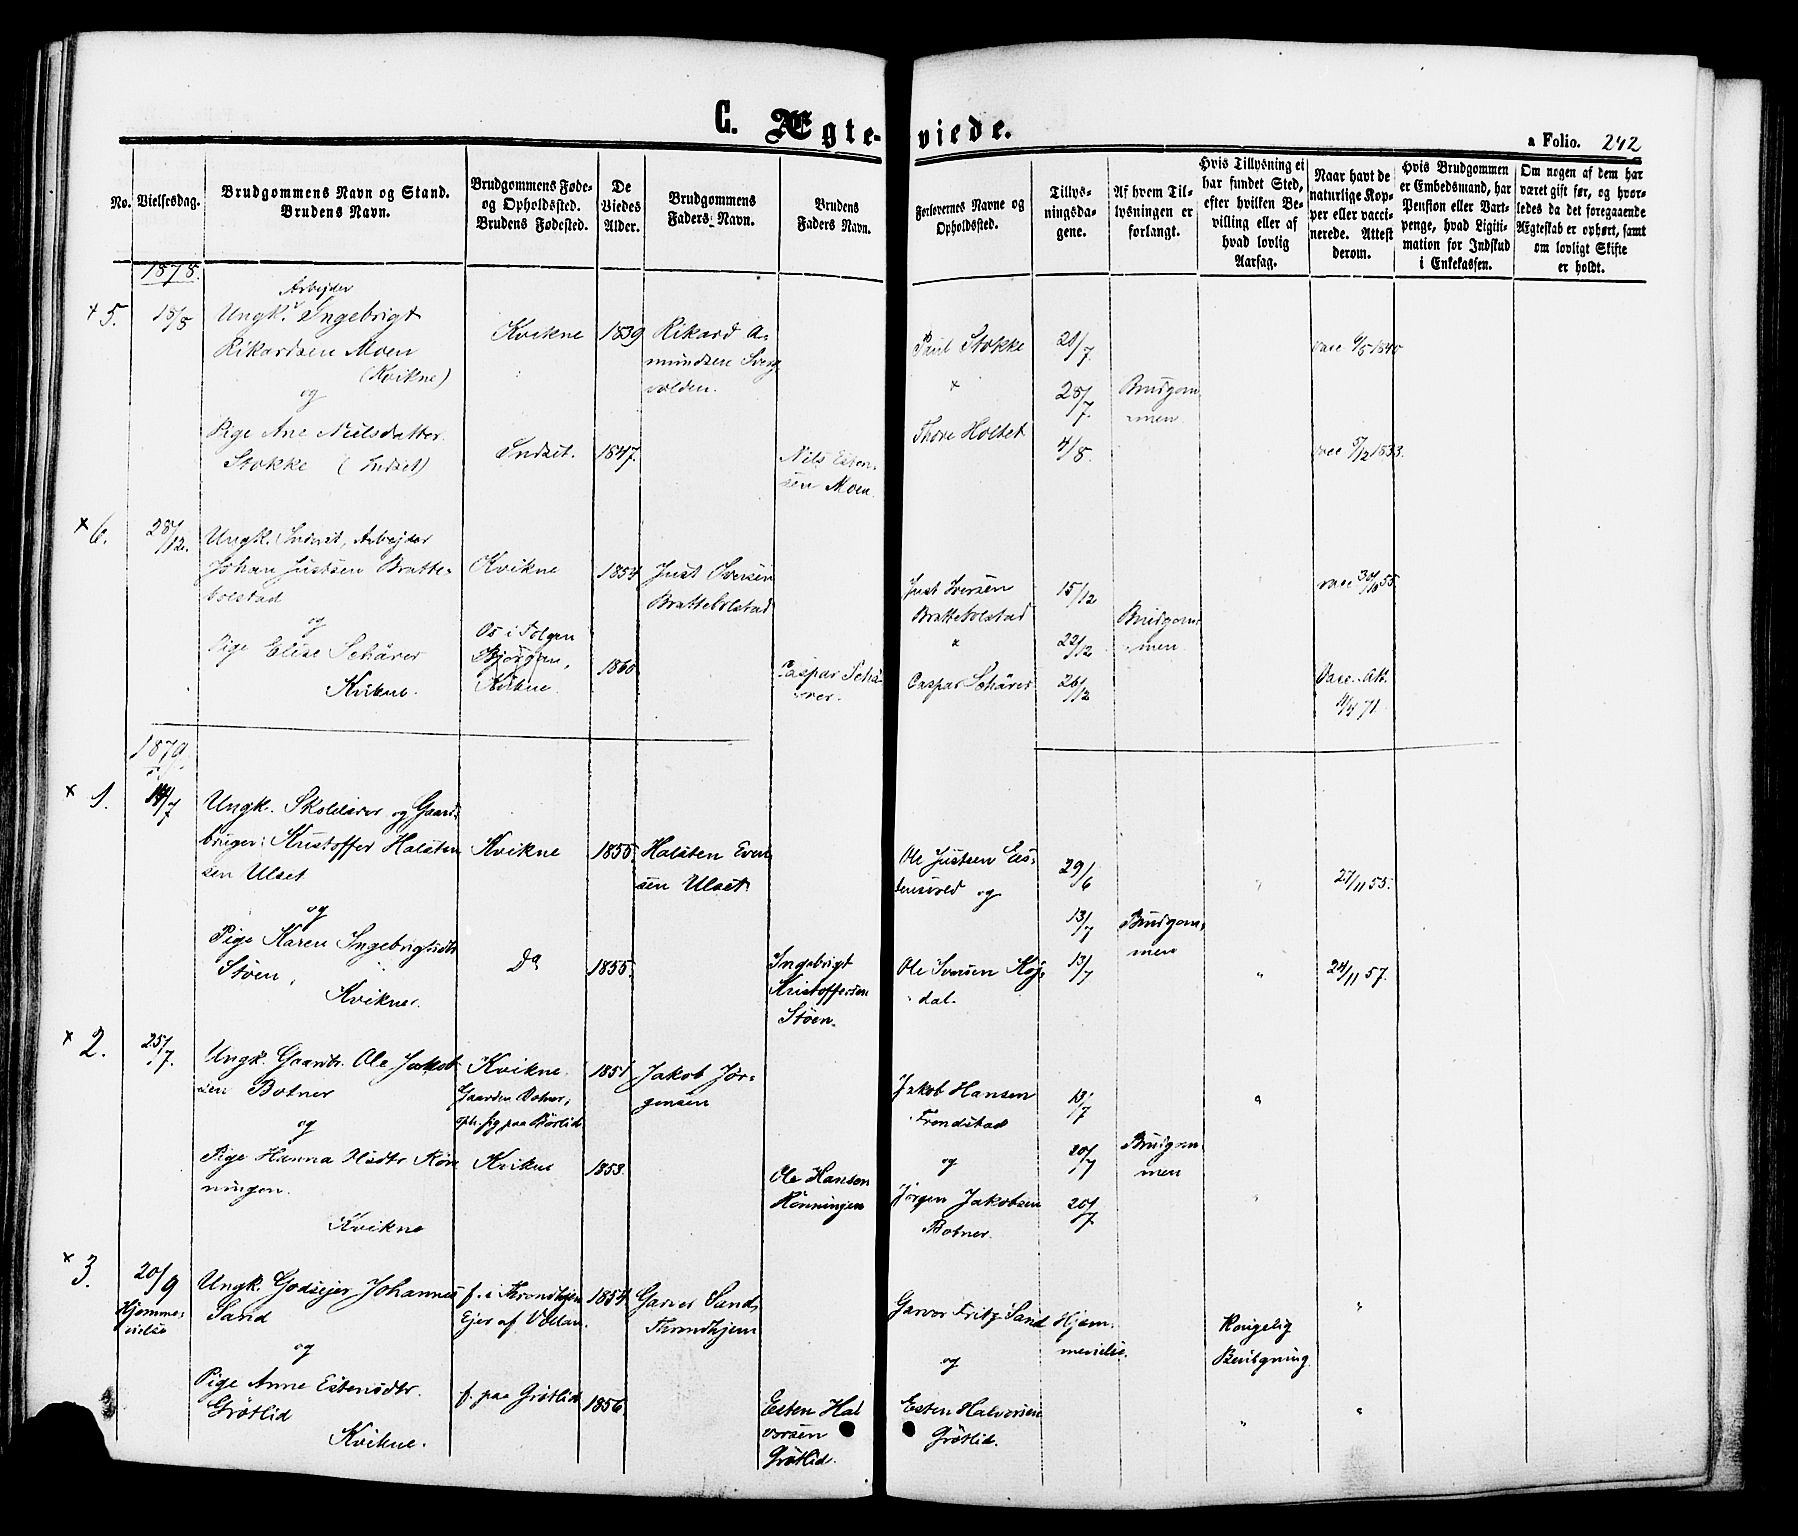 C. Ægte-
viede.
a Folio. 242
No.
Vielsesdag.
Brudgommens Navn og Stand.
Brudens Navn.
Brudgommens Føde-
og Opholdssted.
Brudens Fødested.
De
Viedes
Alder.
Brudgommens
Faders Navn.
Brudens
Faders Navn.
Forlovernes Navne og
Opholdssted.
Tillys-
ningsda-
gene.
Af hvem Til-
lysningen er
forlangt.
Hvis Tillysning ei
har fundet Sted,
efter hvilken Be-
villing eller af
hvad lovlig
Aarsag.
Naar havt de
naturlige Kop-
per eller vacci-
nerede. Attest
derom.
Hvis Brudgommen
er Embedsmand, har
Pension eller Vart-
penge, hvad Ligiti-
mation for Indskud
i Enkekassen.
Om nogen af dem har
været gift før, og hvor-
ledes da det foregaaende
Ægteskab er ophørt, samt
om lovligt Skifte
er holdt.
1878.
Arbejder
+ 5.
18/8
Ungk. Ingebrigt
Rikardsen Moen
(Kvikne)
og
Pige Ane Nielsdatter
Stokke (Indset)
Kvikne
Indset.
1839
1847.
Rikard A-
mundsen
volden.
Nils Esten-
sen Moen.
Paul Stokke
×
Thore Holtet
21/7
28/7
4/8
Brudgom-
men
vacc 6/5 1840
vacc 5/12 1833.
× 6.
28/12.
Ungk. Arbejder
Johan Justsen Bratte-
bolstad
og
Pige Elise Schärer
Kvikne.
Kvikne
Os i Tolgen
Kvikne.
1854
1860
Just Iversen
Brattebolstad
Caspar Schä-
rer.
Just Iversen
Brattebolstad
×
Caspar Schärer
15/12
22/12
26/12
Brudgom-
men
vacc 30/8 55.
Vacc. Att.
4/4 71
1879
× 1.
14/7
Ungk. Skolelærer og Gaard-
bruger: Kristoffer Halsten
sen Ulset
og
Pige Karen Ingebrigtsdtr
Støen,
Kvikne.
Kvikne
Do
1855.
1855.
Halsten Even
sen Ulset.
Ingebrigt
Kristoffersen
Støen.
Ole Justsen Ees-
densvold og
Ole Iversen Koj-
dal.
29/6
13/7
13/7
Brudgom-
men
"
"
27/11 55.
24/11 57.
× 2.
25/7.
Ungk. Gaardbr. Ole Jakob
sen Botner
og
Pige Hanna Olsdtr Røn
ningen.
Kvikne
Kvikne.
Gaarden Botner,
oph. sig paa Børlid
Kvikne
1851
1853.
Jakob Jør-
gensen
Ole Hansen
Rønningen
Jakob Hansen
Frondstad
og
Jørgen Jakobsen
Botner.
13/7
20/7
20/7.
Brudgom
men
"
"
× 3.
20/9
Hjemme-
vielse
Ungk. Godsejer Johannes
Sand
og
Pige Anne Estensdtr.
Grøtlid
Kvikne.
f. i Throndhjem
Ejer af Vollan.
f. paa Grøtlid
1854
1856.
Garver Sand,
Throndhjem
Esten Hal
vorsen
Grøtlid.
Garver Fritz Sand
og
Esten Halvorsen
Grøtlid.
Hjem-
mevielse.
Kongelig
Bevilgning.
"
"
"